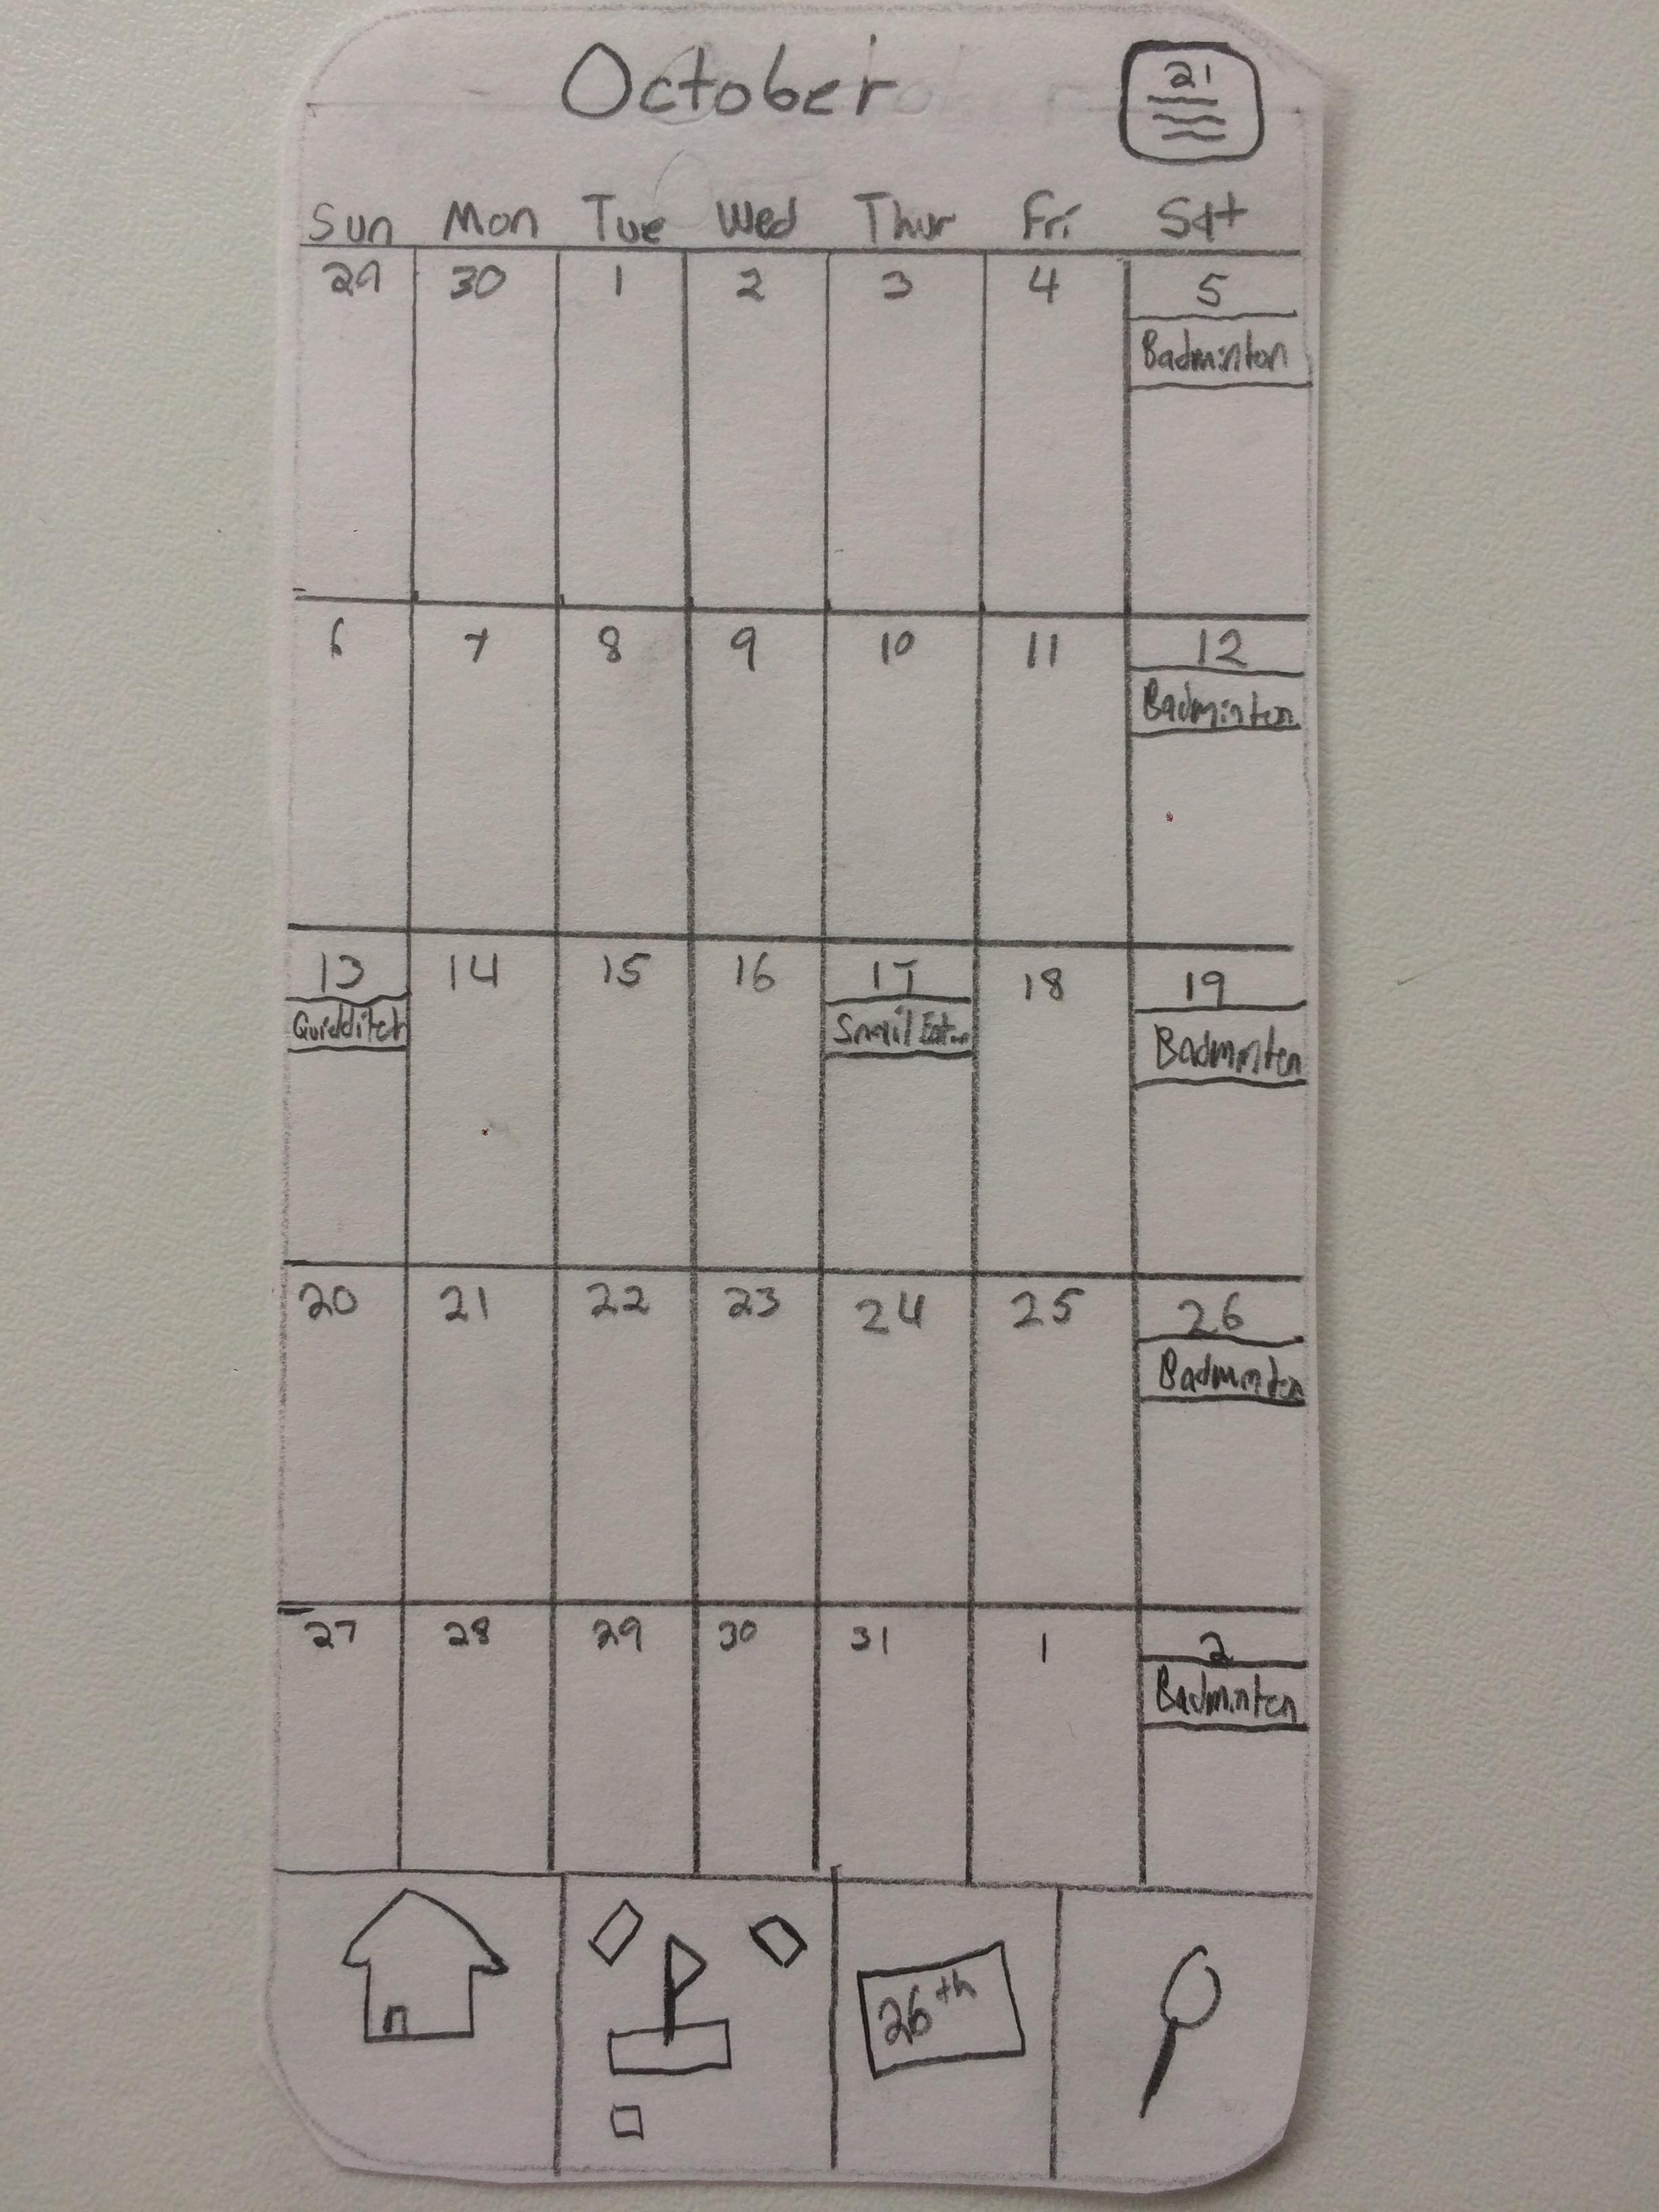 October
21
Sun Mon Tue Wed Thur Fri Sat
29 30 1 2 3 4 5
Badminton
6 7 8 9 10 11 12
Badminton
13 14 15 16 17 18 19
Quidditch Snail Eat... Badminton
20 21 22 23 24 25 26
Badminton
27 28 29 30 31 1 2
Badminton
26th